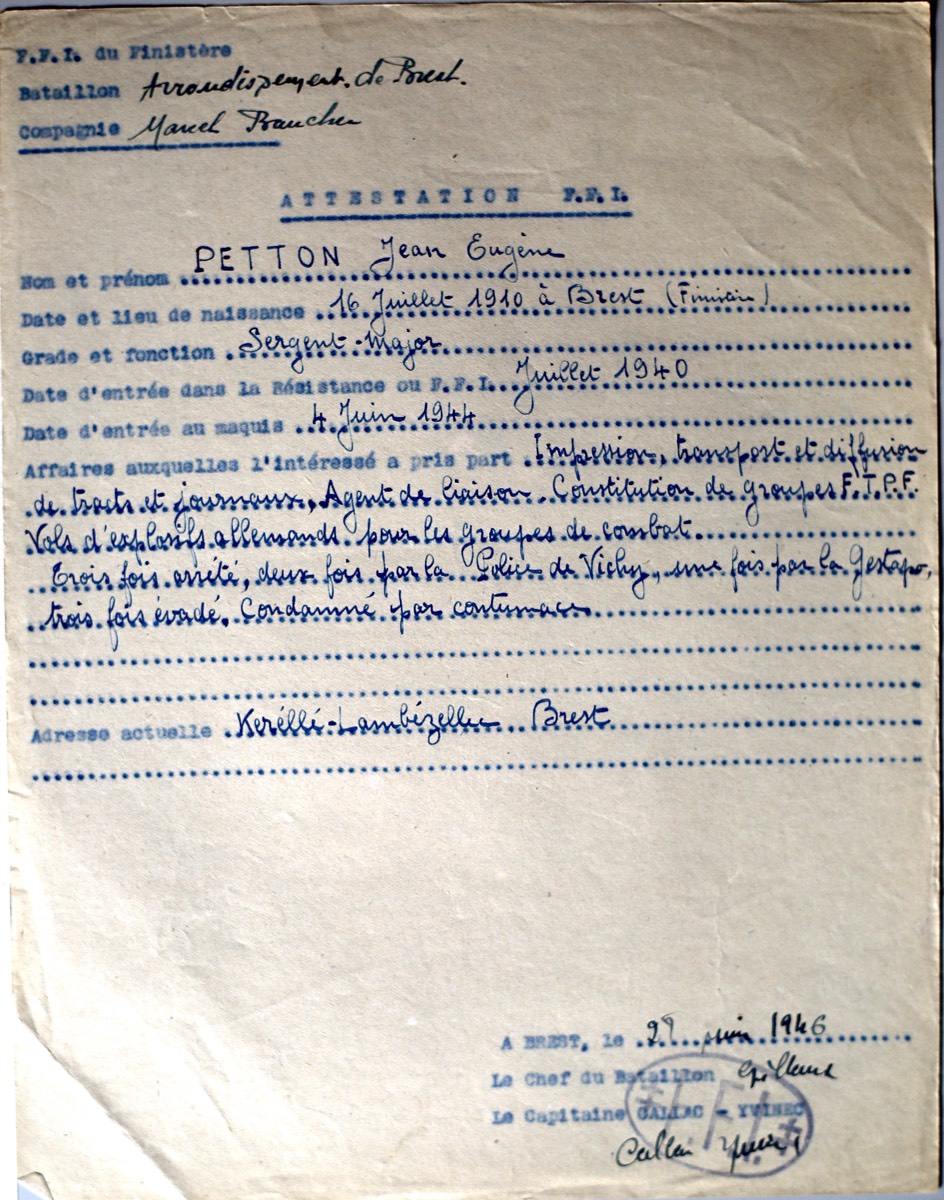 F.F.I. du Finistère
Bataillon Arrondissement de Brest.
Compagnie Marcel
ATTESTATION F.F.I.
Nom et prénom PETTON Jean Eugène
Date et lieu de naissance 16 Juillet 1910 à Brest (Finistère)
Grade et fonction Sergent-Major
Date d'entrée dans la Résistance ou F.F.I. Juillet 1940
Date d'entrée au maquis 4 Juin 1944
Affaires auxquelles l'intéressé a pris part Impression, transport et diffusion
de tracts et journaux, Agent de liaison. Constitution de groupes F.T.P.F.
Vols d'explosifs allemands pour les groupes de combat.
Trois fois arrêté, deux fois par la Police de Vichy, une fois par la Gestapo,
trois fois évadé. Condamné par contumace
Adresse actuelle Keréllé-Lambézellec Brest
A BREST, le juin 1946
Le Chef du Bataillon
Le Capitaine CALLAC - YVINEC
F.F.I.